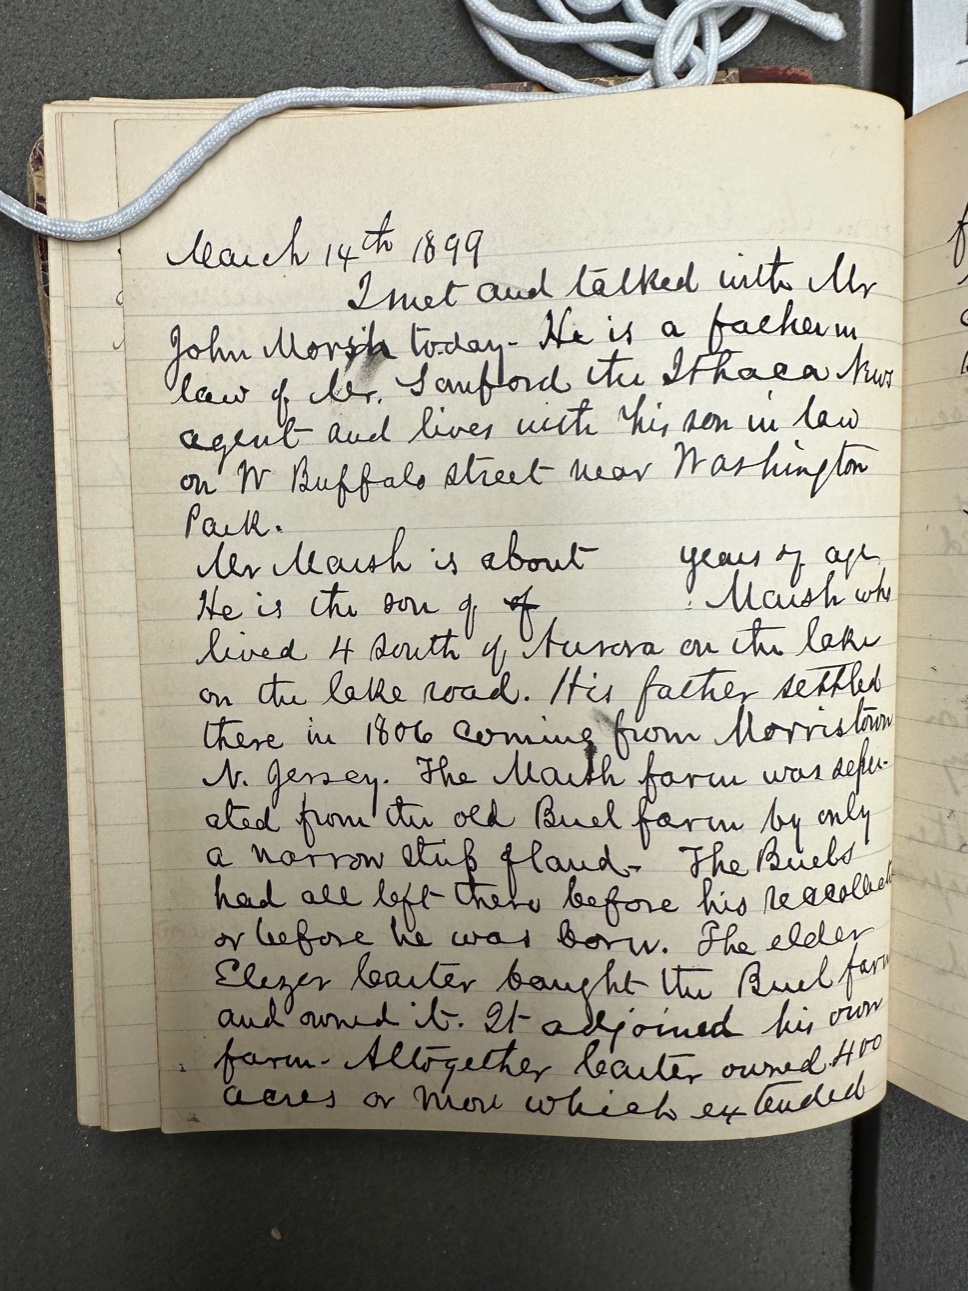 March 14th 1899
I met and talked with Mr
John Marsh today - He is a father in
law of Mr. Sanford the Ithaca News
agent and lives with his son in law
on W Buffalo street near Washington
Park.
Mr Marsh is about years of age
He is the son of of Marsh who
lived 4 south of Aurora on the lake
on the lake road. His father settled
there in 1806 coming from Morristown
N. Jersey. The Marsh farm was sepe-
ated from the old Buel farm by only
a narrow strip of land - The Buels
had all left there before his recollect
or before he was born. The elder
Elezer Carter bought the Buel farm
and owned it. It adjoined his own
farm - Altogether Carter owned 400
acres or more which extended